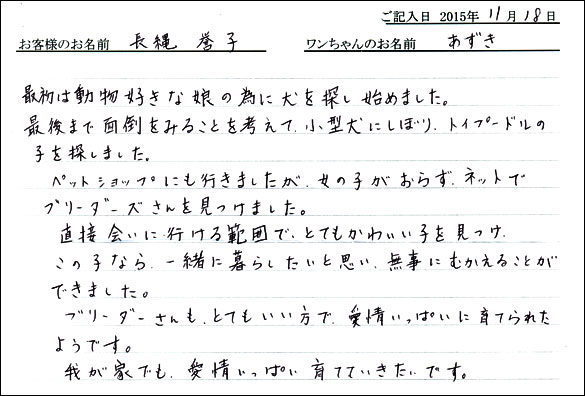 ご記入日 2015年 11月 18日
お客様のお名前 長縄 誉子 ワンちゃんのお名前 あずき
最初は動物好きな娘の為に犬を探し始めました。
最後まで面倒をみることを考えて、小型犬にしぼり、トイプードルの
子を探しました。
ペットショップにも行きましたが、女の子がおらず、ネットで
ブリーダーズさんを見つけました。
直接会いに行ける範囲で、とてもかわいい子を見つけ、
この子なら、一緒に暮らしたいと思い、無事にむかえることが
できました。
ブリーダーさんも、とてもいい方で、愛情いっぱいに育てられた
ようです。
我が家でも、愛情いっぱい育てていきたいです。